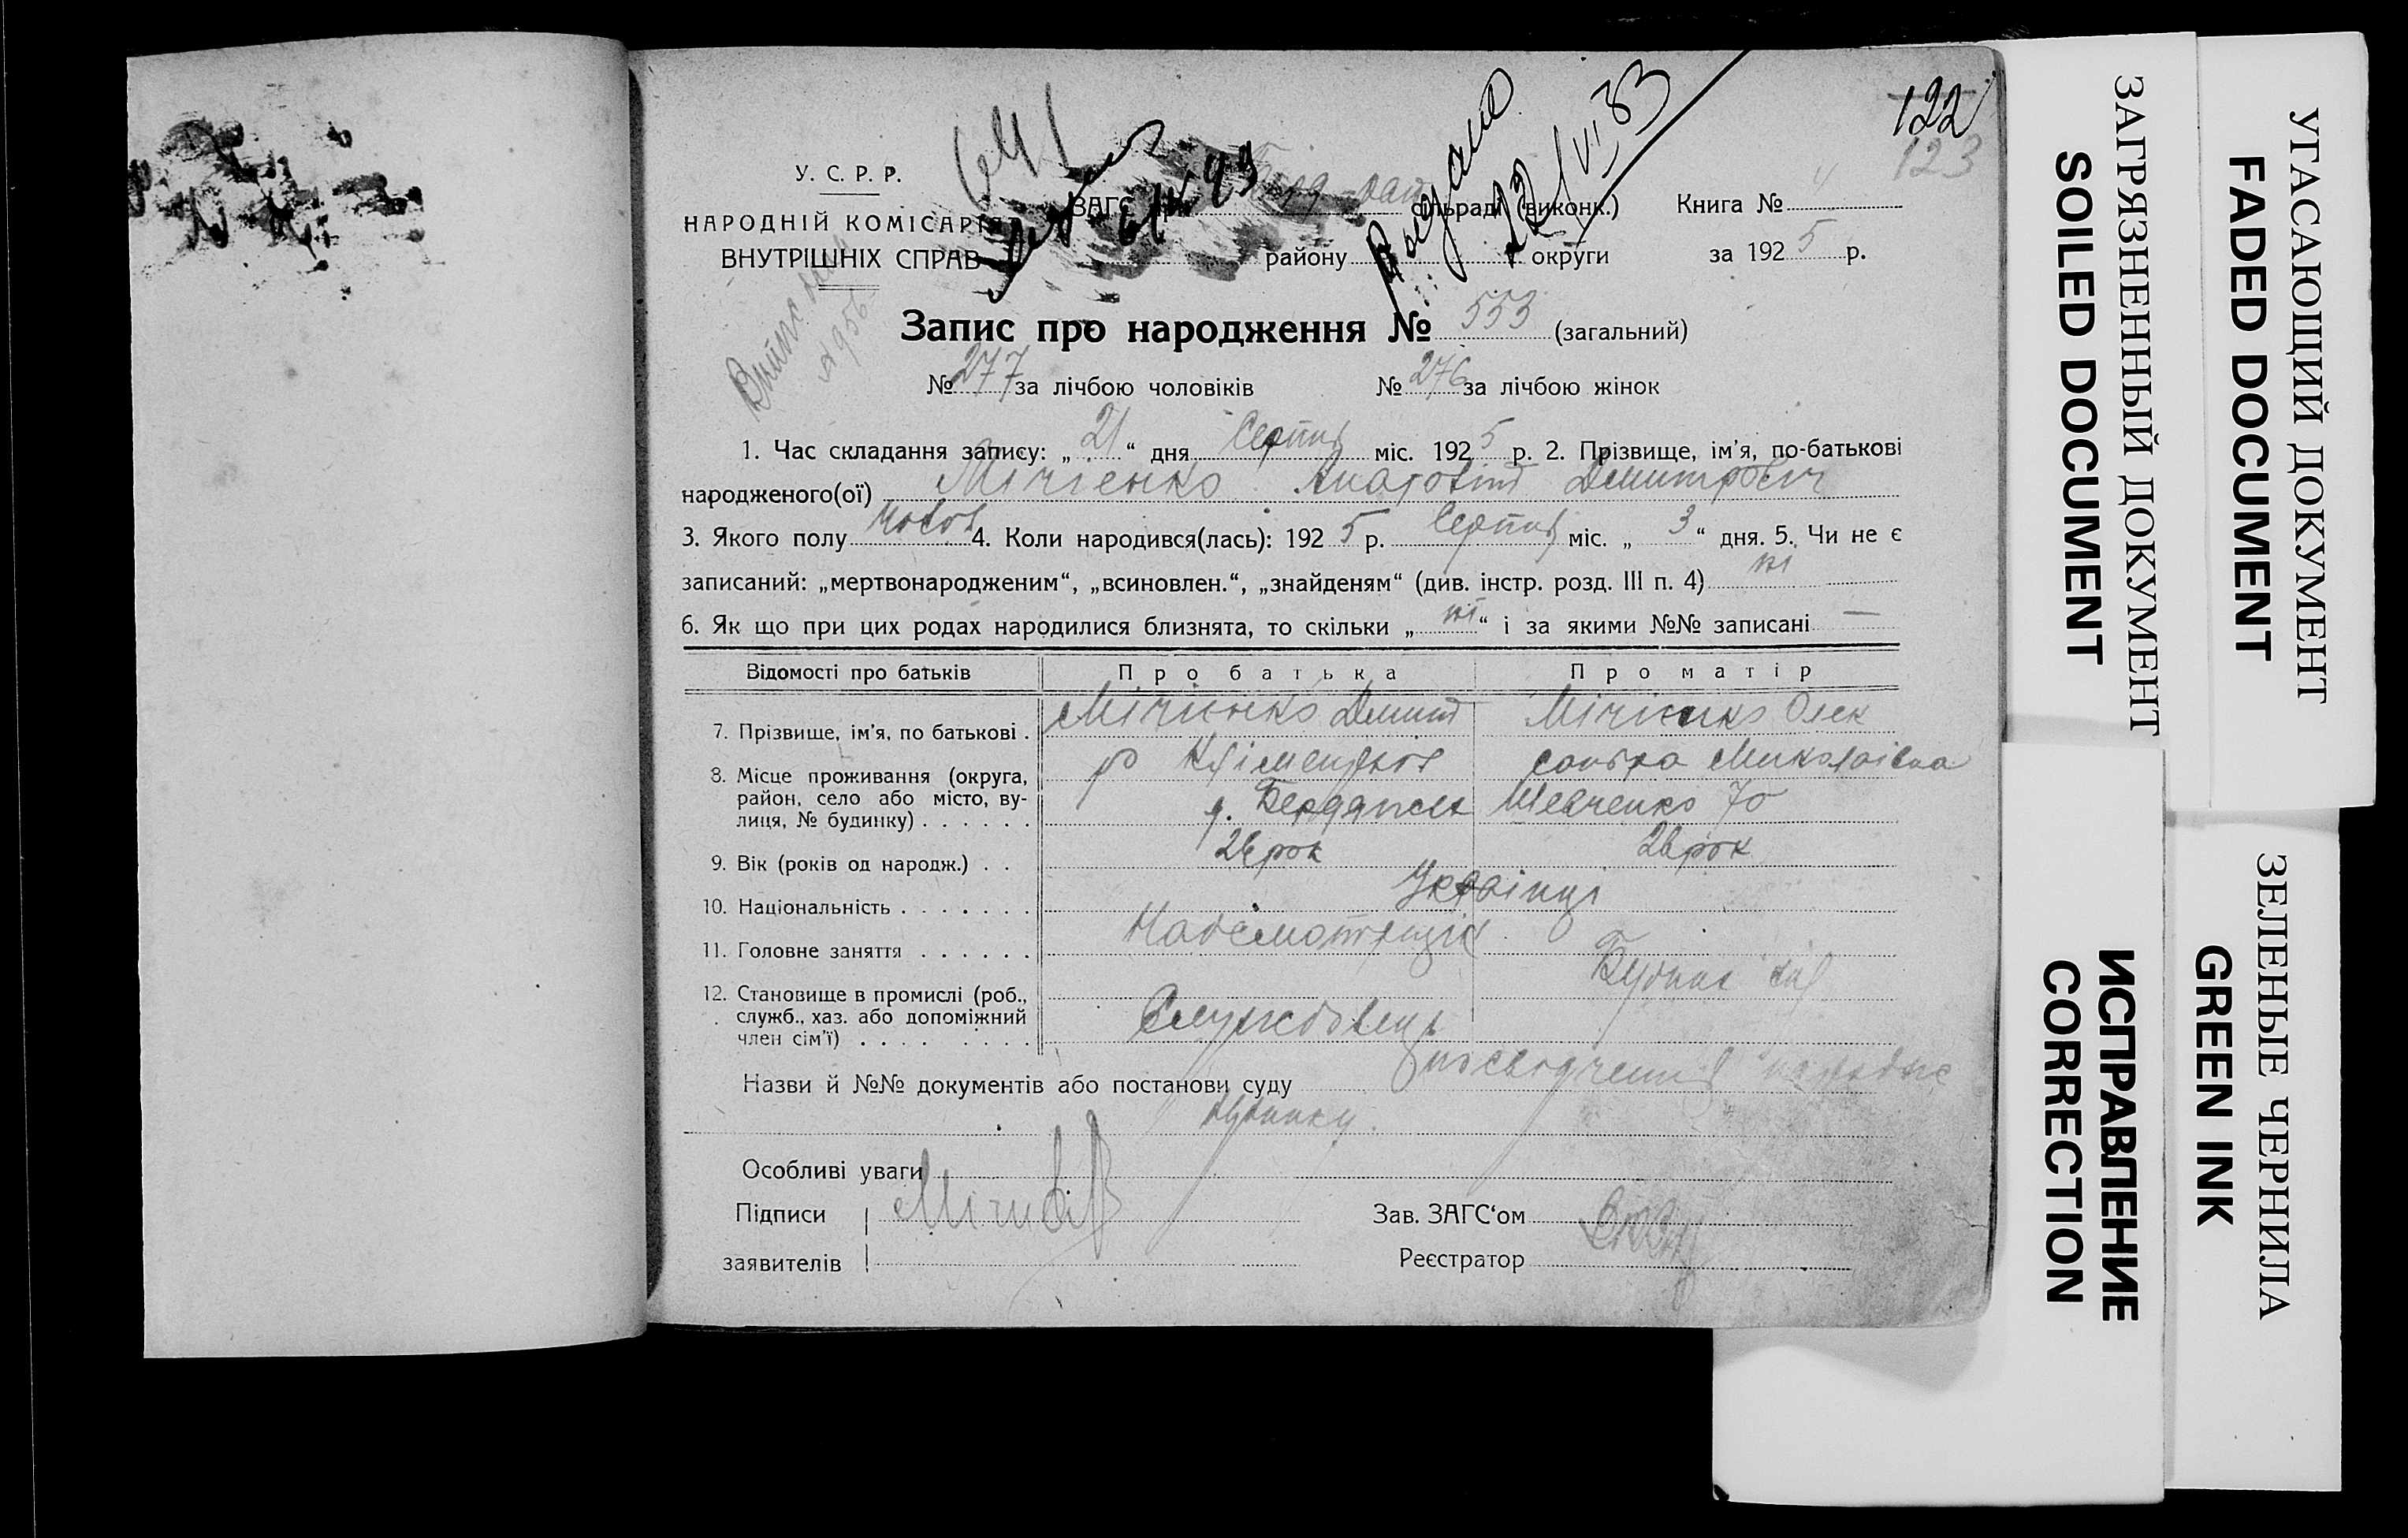 122
123
У. С. Р. Р.
НАРОДНІЙ КОМІСАРІЯТ
ВНУТРІШНІХ СПРАВ
ЗАГС при сільраді (виконк.)
району округи
Книга № 4
за 1925 р.
Видано
12/VI 33
Запис про народження № 553 (загальний)
№ 277 за лічбою чоловіків № 276 за лічбою жінок
1. Час складання запису: „21“ дня Серпня міс. 1925 р. 2. Прізвище, ім'я, по-батькові
народженого(ої) Мічієнко Анатолій Демитрович
3. Якого полу чолов 4. Коли народився(лась): 1925 р. Серпня міс. „3“ дня. 5. Чи не є
записаний: „мертвонародженим“, „всиновлен.“, „знайденям“ (див. інстр. розд. III п. 4) ні
6. Як що при цих родах народилися близнята, то скільки „ні“ і за якими №№ записані —
Відомості про батьків Про батька Про матір
7. Прізвище, ім'я, по батькові . Мічієнко Демит Мічієнко Олек
р Кліментьов сандра Миколаівна
8. Місце проживання (округа,
район, село або місто, ву-
лиця, № будинку) . . . . . . Бердянськ Шевченко 70
9. Вік (років од народж.) . . 26 рок 26 рок
10. Національність . . . . . . . Українці
11. Головне заняття . . . . . .
12. Становище в промислі (роб.,
служб., хаз. або допоміжний
член сім'ї) . . . . . . . . Службовець
Назви й №№ документів або постанови суду посвідчення
будинку.
Особливі уваги
Підписи
заявителів
Зав. ЗАГС‘ом
Реєстратор
ЗАГРЯЗНЕННЫЙ ДОКУМЕНТ
SOILED DOCUMENT
УГАСАЮЩИЙ ДОКУМЕНТ
FADED DOCUMENT
ИСПРАВЛЕНИЕ
CORRECTION
ЗЕЛЕНЫЕ ЧЕРНИЛА
GREEN INK